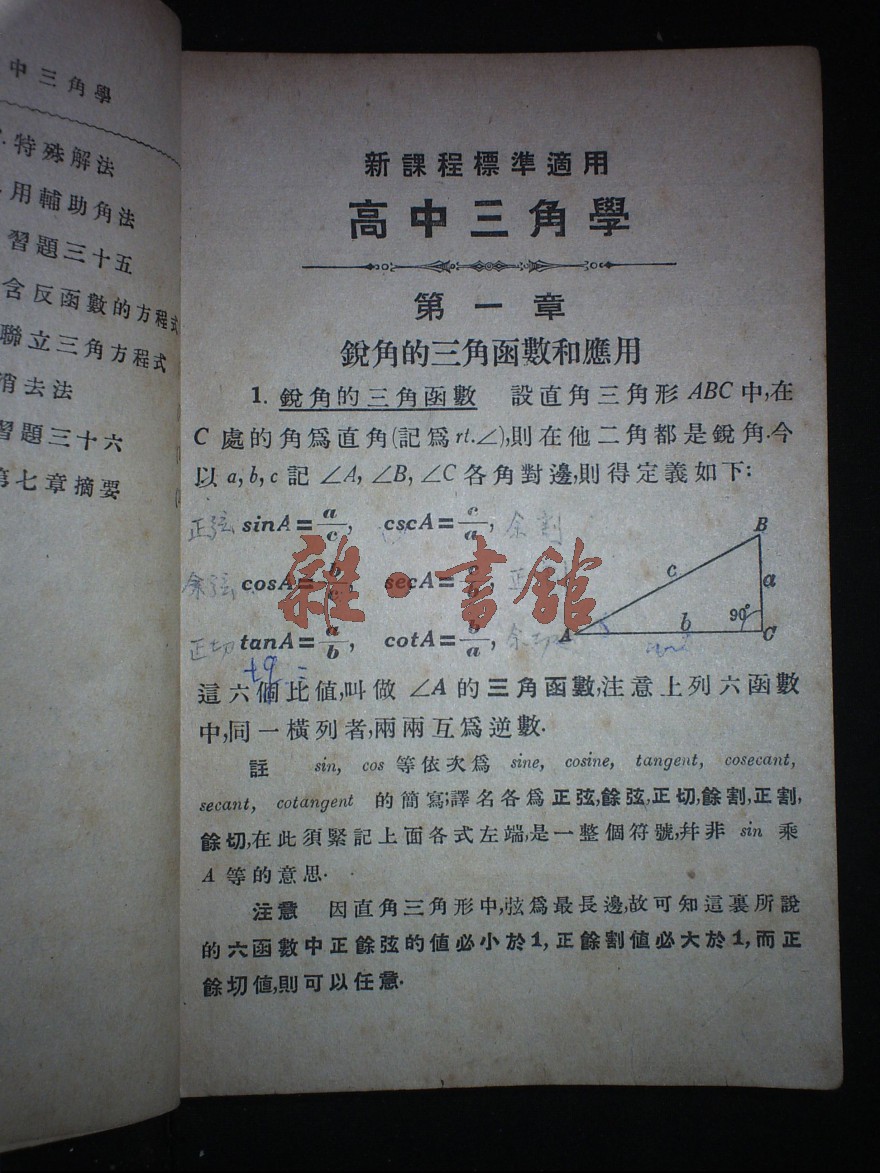 中三角學
特殊解法
用輔助角法
習題三十五
含反函數的方程式
聯立三角方程式
消去法
習題三十六
第七章摘要
新課程標準適用
高中三角學
第一章
銳角的三角函數和應用
1. 銳角的三角函數 設直角三角形 ABC 中,在
C 處的角爲直角(記爲 rt.∠),則在他二角都是銳角.今
以 a, b, c 記 ∠A, ∠B, ∠C 各角對邊,則得定義如下:
正弦 sinA=a/c, cscA=c/a, 余割
余弦 cosA=b/c, secA=c/b, 正
正切 tanA=a/b, cotA=b/a, 余切
tg
B
c
a
90°
A
b
C
雜·書館
這六個比值,叫做 ∠A 的三角函數,注意上列六函數
中,同一橫列者,兩兩互爲逆數.
註 sin, cos 等依次爲 sine, cosine, tangent, cosecant,
secant, cotangent 的簡寫;譯名各爲正弦,餘弦,正切,餘割,正割,
餘切,在此須緊記上面各式左端,是一整個符號,幷非 sin 乘
A 等的意思.
注意 因直角三角形中,弦爲最長邊,故可知這裏所說
的六函數中正餘弦的值必小於1,正餘割值必大於1,而正
餘切值,則可以任意.